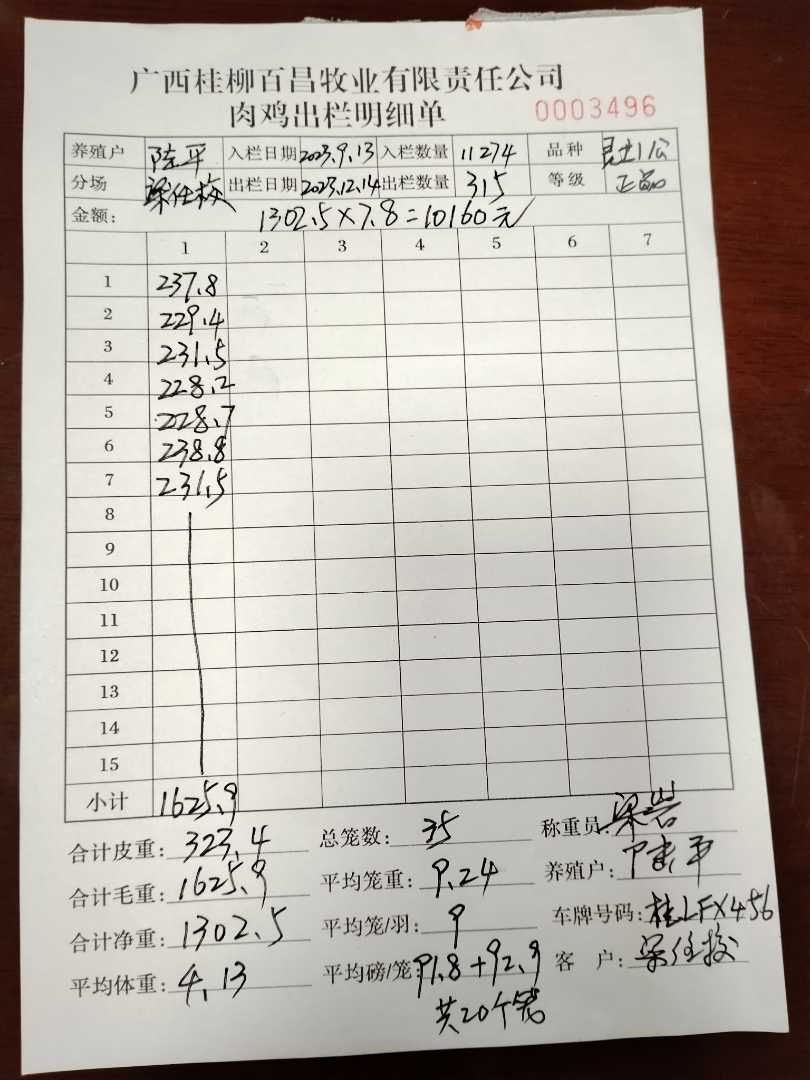 广西桂柳百昌牧业有限责任公司
肉鸡出栏明细单 0003496
养殖户 陆平 入栏日期 2023.9.13 入栏数量 11274 品种
分场 出栏日期 2023.12.14 出栏数量 315 等级 正品
金额: 1302.5×7.8=10160元
1 2 3 4 5 6 7
1 237.8
2 229.4
3 231.5
4 228.2
5 228.7
6 238.8
7 231.5
8
9
10
11
12
13
14
15
小计 1625.9
合计皮重: 323.4 总笼数: 35 称重员: 梁岩
合计毛重: 1625.9 平均笼重: 9.24 养殖户: 陆平
合计净重: 1302.5 平均笼/羽: 9 车牌号码: 桂LFX456
平均体重: 4.13 平均磅/笼: 91.8+92.9 客 户:
共20个笼